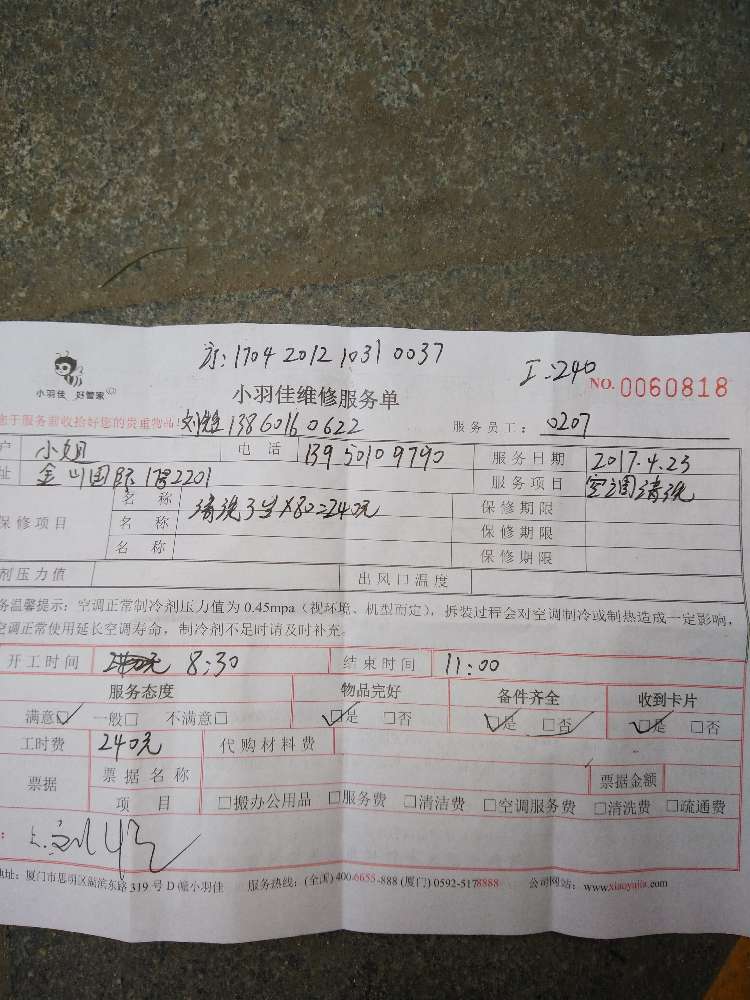 京:1704 2012 1031 0037
工:240
小羽佳 好管家
NO. 0060818
小羽佳维修服务单
于服务前收拾好您的贵重物品! 13860160622
服务员工: 0207
户 小姐 电话 13950109790 服务日期 2017.4.23
址 金山国际 2201 服务项目 空调清洗
保修项目 名称 清洗3台×80=240元 保修期限
名称 保修期限
名称 保修期限
剂压力值 出风口温度
务温馨提示:空调正常制冷剂压力值为 0.45mpa(视环境、机型而定),拆装过程会对空调制冷或制热造成一定影响,
空调正常使用延长空调寿命,制冷剂不足时请及时补充。
开工时间 8:30 结束时间 11:00
服务态度 物品完好 备件齐全 收到卡片
满意☑ 一般□ 不满意□ ☑是 □否 ☑是 ☑否 ☑是 □否
工时费 240元 代购材料费
票据 票据名称 票据金额
项目 □搬办公用品 □服务费 □清洁费 □空调服务费 □清洗费 □疏通费
地址:厦门市思明区湖滨东路 319 号 D 幢小羽佳 服务热线:(全国)400-6655-888 (厦门) 0592-5178888 公司网站:www.xiaoyujia.com